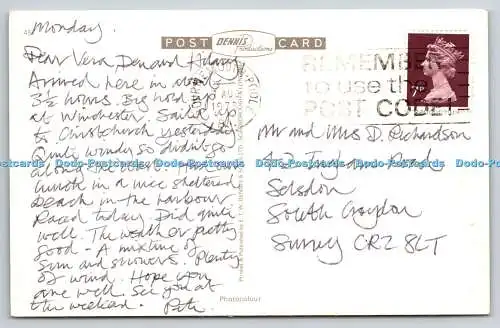 Monday.
POST DENNIS CARD
Productions
Dear Vera Den and Hilary
Arrived here in about
3½ hours. Big hold up
at Winchester. Sailed up
to Christchurch yesterday
Quite windy so didn't go
along the
lunch in a nice sheltered
beach in the harbour
Raced today. Did quite
well. The weather pretty
good - A mixture of
sun and showers. Plenty
of wind. Hope you
are well. See you at
the weekend. Pete
REMEMBER
to use the
POST CODE
7P
AUG
Mr and Mrs D. Richardson
Road
Selsdon
South Croydon
Surrey CR2 8LT
Dodo-Postcards Dodo-Postcards Dodo-Postcards Dodo-Postcards Dodo-Postcards
Photocolour